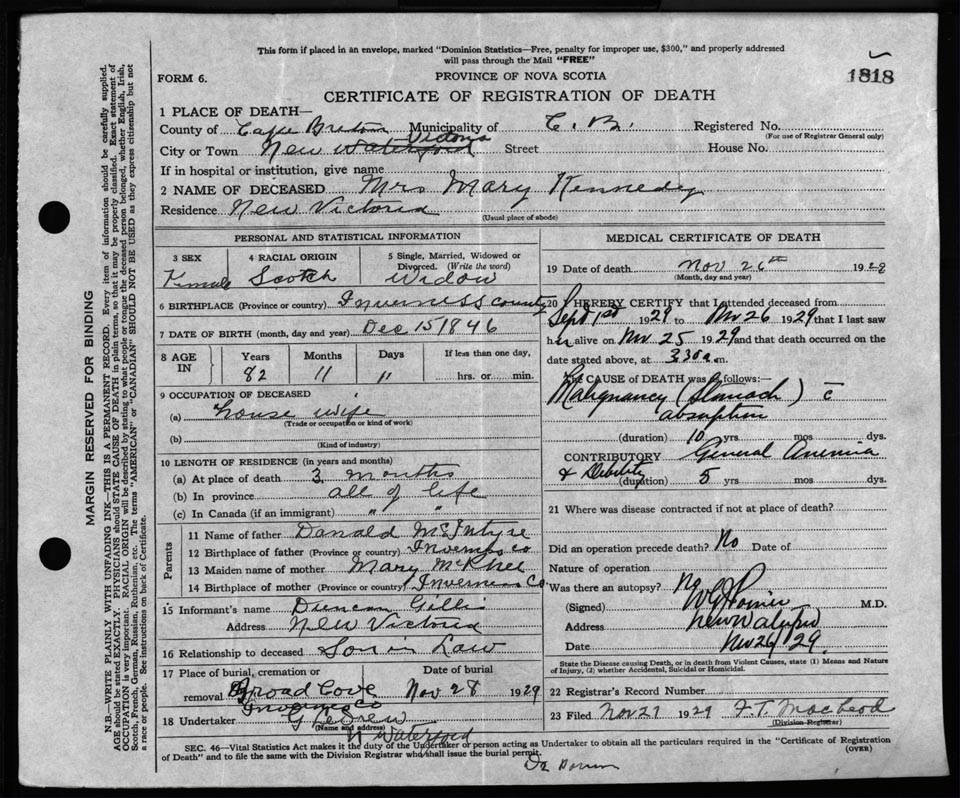 This form if placed in an envelope, marked "Dominion Statistics—Free, penalty for improper use, $300," and properly addressed
will pass through the Mail "FREE"
FORM 6.
PROVINCE OF NOVA SCOTIA
1818
CERTIFICATE OF REGISTRATION OF DEATH
1 PLACE OF DEATH—
County of Cape Breton Municipality of C. B. Registered No.
(For use of Registrar General only)
City or Town New Waterford Victoria Street House No.
If in hospital or institution, give name
2 NAME OF DECEASED Mrs Mary Kennedy
Residence New Victoria
(Usual place of abode)
PERSONAL AND STATISTICAL INFORMATION
3 SEX 4 RACIAL ORIGIN 5 Single, Married, Widowed or
Divorced. (Write the word)
Female Scotch Widow
6 BIRTHPLACE (Province or country) Inverness County
7 DATE OF BIRTH (month, day and year) Dec 15 1846
8 AGE IN Years Months Days If less than one day,
82 11 11 hrs. or min.
9 OCCUPATION OF DECEASED
(a) house wife
(Trade or occupation or kind of work)
(b)
(Kind of industry)
10 LENGTH OF RESIDENCE (in years and months)
(a) At place of death 3 months
(b) In province all of life
(c) In Canada (if an immigrant) "
Parents
11 Name of father Donald McIntyre
12 Birthplace of father (Province or country) Inverness Co
13 Maiden name of mother Mary McPhee
14 Birthplace of mother (Province or country) Inverness Co
15 Informant's name Duncan Gillis
Address New Victoria
16 Relationship to deceased Son in Law
17 Place of burial, cremation or Date of burial
removal Broad Cove Nov 28 1929
Inverness Co
18 Undertaker
(Name and address)
N Waterford
MEDICAL CERTIFICATE OF DEATH
19 Date of death Nov 26th 1929
(Month, day and year)
20 I HEREBY CERTIFY that I attended deceased from
Sept 1st 1929 to Nov 26 1929 that I last saw
her alive on Nov 25 1929 and that death occurred on the
date stated above, at 3 30 a.m.
The CAUSE OF DEATH was as follows:—
Malignancy (Stomach) c̄
absorption
(duration) 10 yrs mos dys.
CONTRIBUTORY General Anemia
& Debility (duration) 5 yrs mos dys.
21 Where was disease contracted if not at place of death?
Did an operation precede death? No Date of
Nature of operation
Was there an autopsy? No
(Signed) M.D.
Address New Waterford
Date Nov 26/29.
State the Disease causing Death, or in death from Violent Causes, state (1) Means and Nature
of Injury, (2) whether Accidental, Suicidal or Homicidal.
22 Registrar's Record Number
23 Filed Nov 27 1929 F. T. MacLeod
(Division Registrar)
SEC. 46—Vital Statistics Act makes it the duty of the Undertaker or person acting as Undertaker to obtain all the particulars required in the "Certificate of Registration
of Death" and to file the same with the Division Registrar who shall issue the burial permit. (OVER)
MARGIN RESERVED FOR BINDING
N.B.—WRITE PLAINLY WITH UNFADING INK—THIS IS A PERMANENT RECORD. Every item of information should be carefully supplied.
AGE should be stated EXACTLY. PHYSICIANS should STATE CAUSE OF DEATH in plain terms, so that it may be properly classified. Exact statement of
OCCUPATION is very important. RACIAL ORIGIN will be described by stating to what people or tongue the deceased person belonged, whether English, Irish,
Scotch, French, German, Russian, Ruthenian, etc. The terms "AMERICAN" or "CANADIAN" SHOULD NOT BE USED as they express citizenship but not
a race or people. See instructions on back of Certificate.